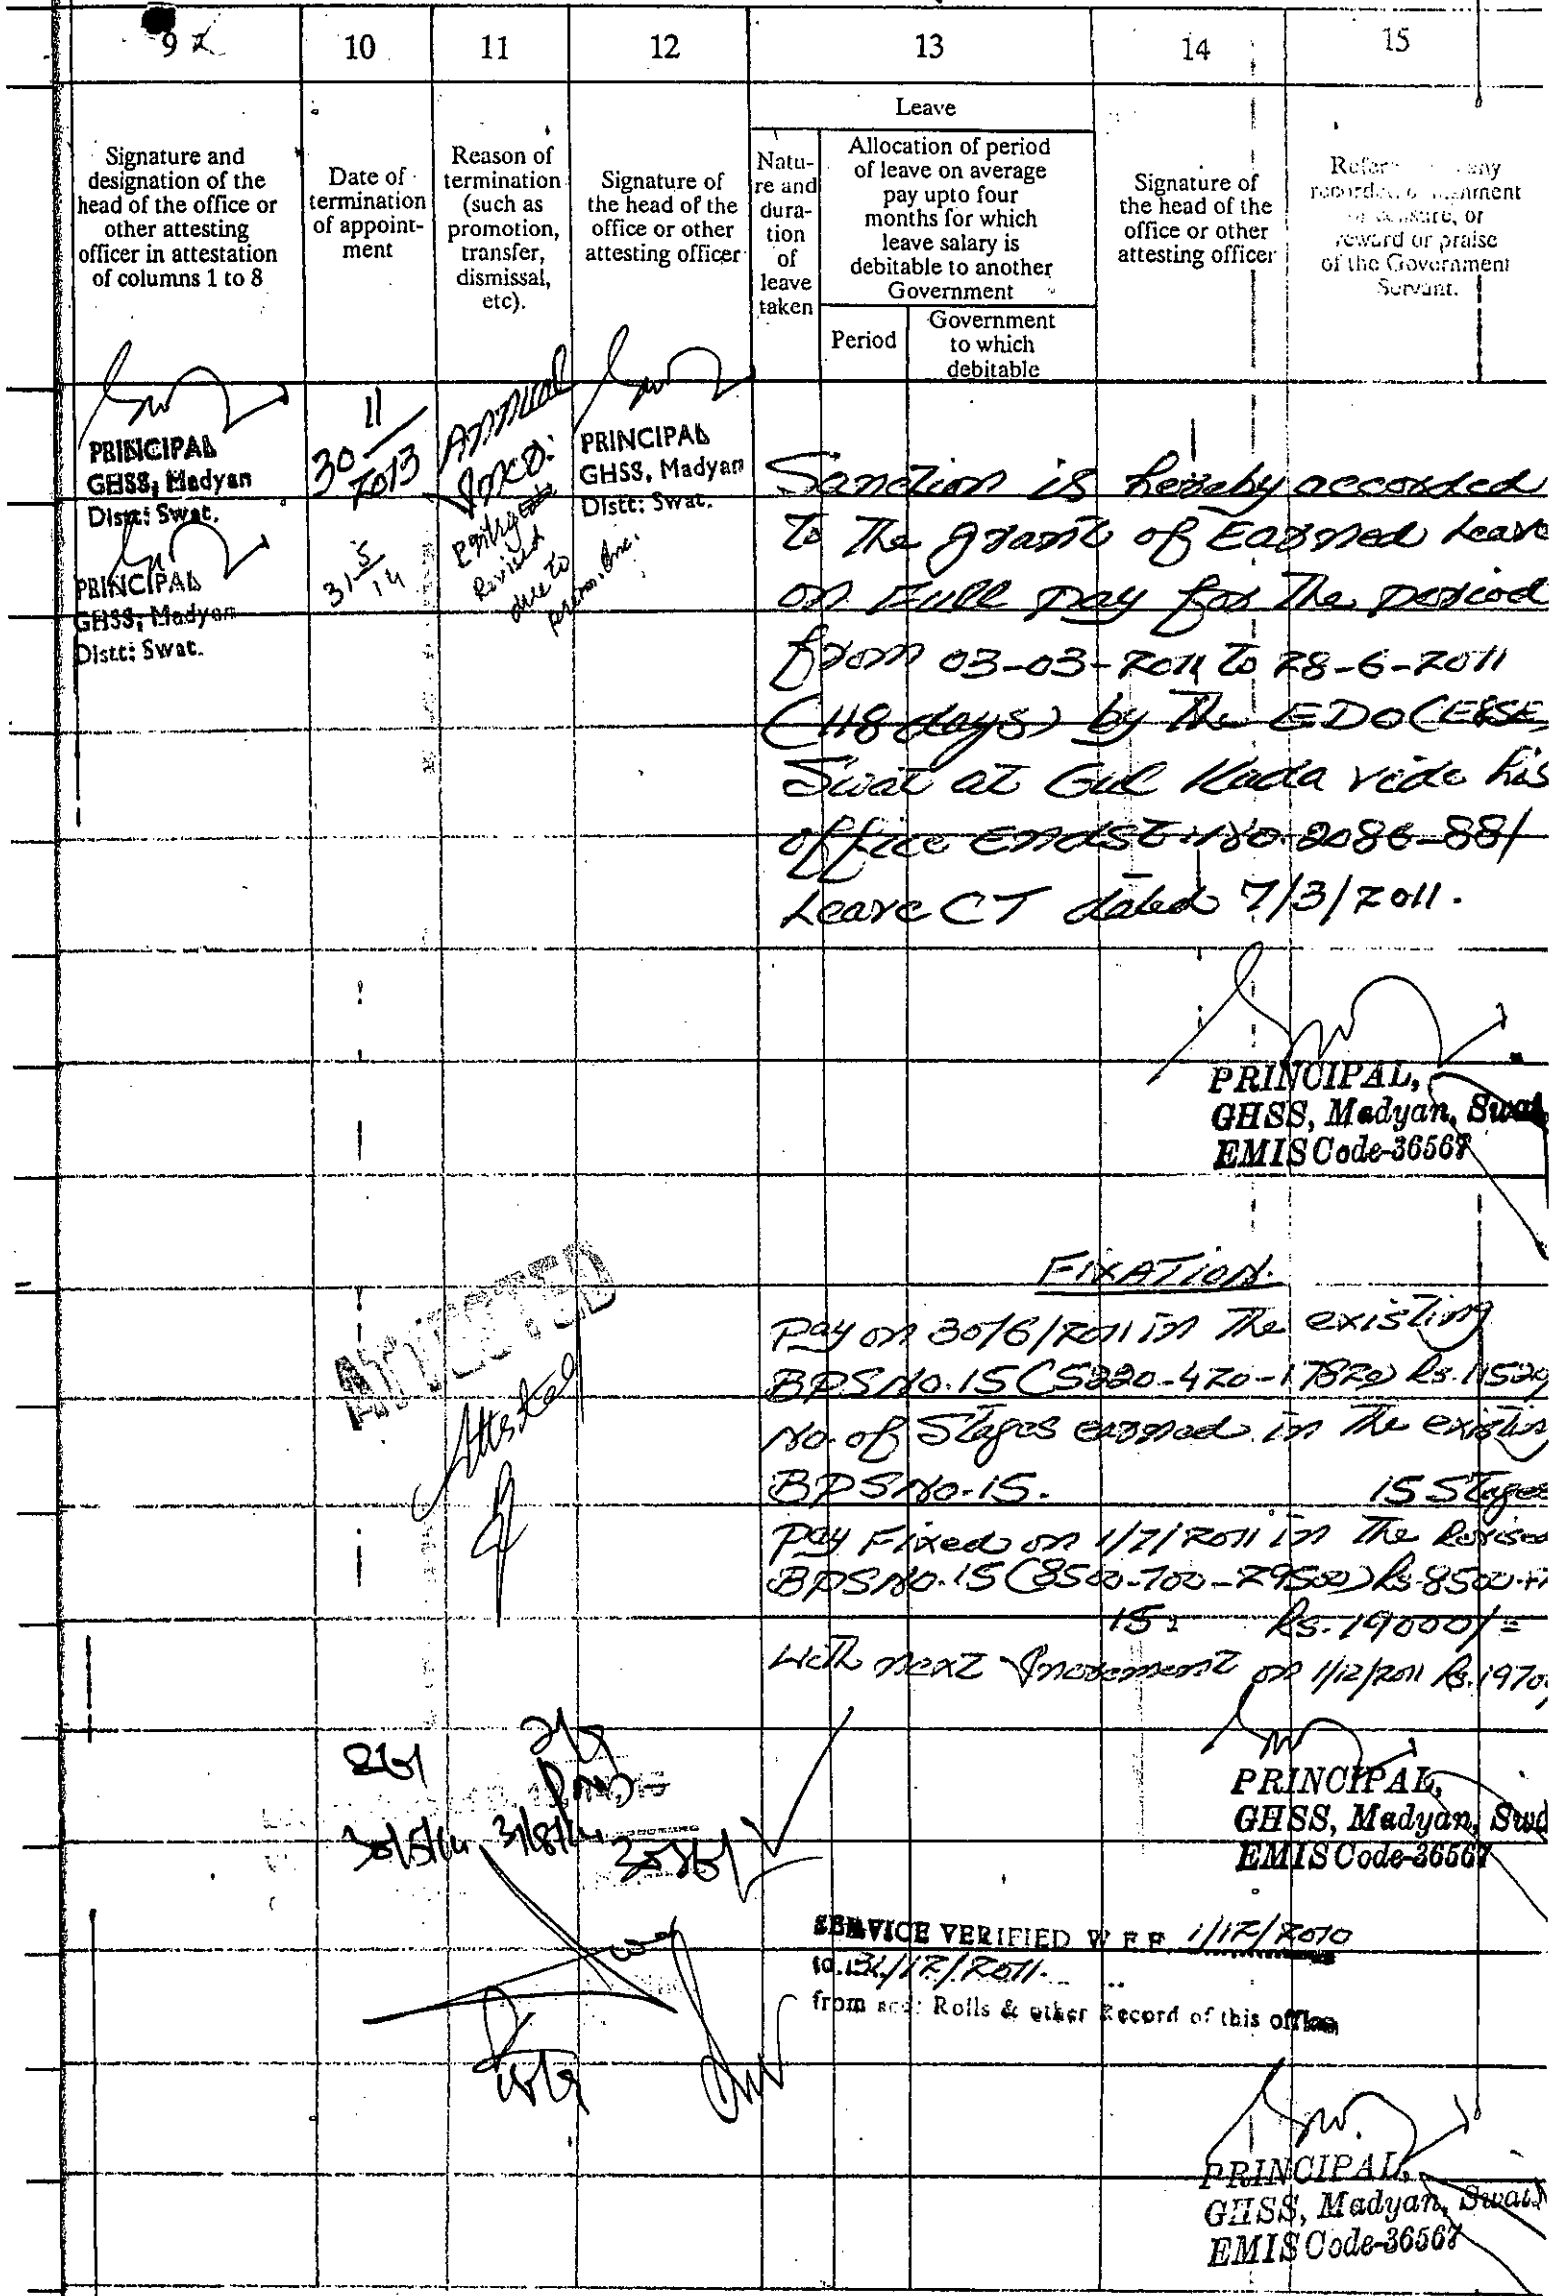 9
10
11
12
13
14
15
Signature and
designation of the
head of the office or
other attesting
officer in attestation
of columns 1 to 8
Date of
termination
of appoint-
ment
Reason of
termination
(such as
promotion,
transfer,
dismissal,
etc).
Signature of
the head of the
office or other
attesting officer
Leave
Natu-
re and
dura-
tion
of
leave
taken
Allocation of period
of leave on average
pay upto four
months for which
leave salary is
debitable to another
Government
Period
Government
to which
debitable
Signature of
the head of the
office or other
attesting officer
any
or censure, or
reward or praise
of the Government
Servant.
PRINCIPAL
GHSS, Madyan
Distt: Swat.
30 11/2013
Annual
PRINCIPAL
GHSS, Madyan
Distt: Swat.
PRINCIPAL
GHSS, Madyan
Distt: Swat.
31-5/14
Revised
due to
Sanction is hereby accorded
to The grant of Earned Leave
on Full pay for The period
from 03-03-2011 to 28-6-2011
(118 days) by The EDO (E&SE)
Swat at Gul Kada vide his
office Endst: No. 2086-88/
Leave CT dated 7/3/2011.
PRINCIPAL,
GHSS, Madyan, Swat
EMIS Code-36567
FIXATION.
Pay on 30/6/2011 in The existing
BPS No. 15 (5220-420-17820) Rs. 11520
No. of Stages earned in The existing
BPS No. 15. 15 Stages
Pay Fixed on 1/7/2011 in The Revised
BPS No. 15 (8500-700-29500) Rs. 8500+
15= Rs. 19000/=
With next Increment on 1/12/2011 Rs. 1970
ATTESTED
Attested
PRINCIPAL,
GHSS, Madyan, Swa
EMIS Code-36567
30/5/14 31/8/14
SERVICE VERIFIED W E F 1/12/2010
to 31/12/2011.
from Rolls & other Record of this office
PRINCIPAL,
GHSS, Madyan, Swat
EMIS Code-36567